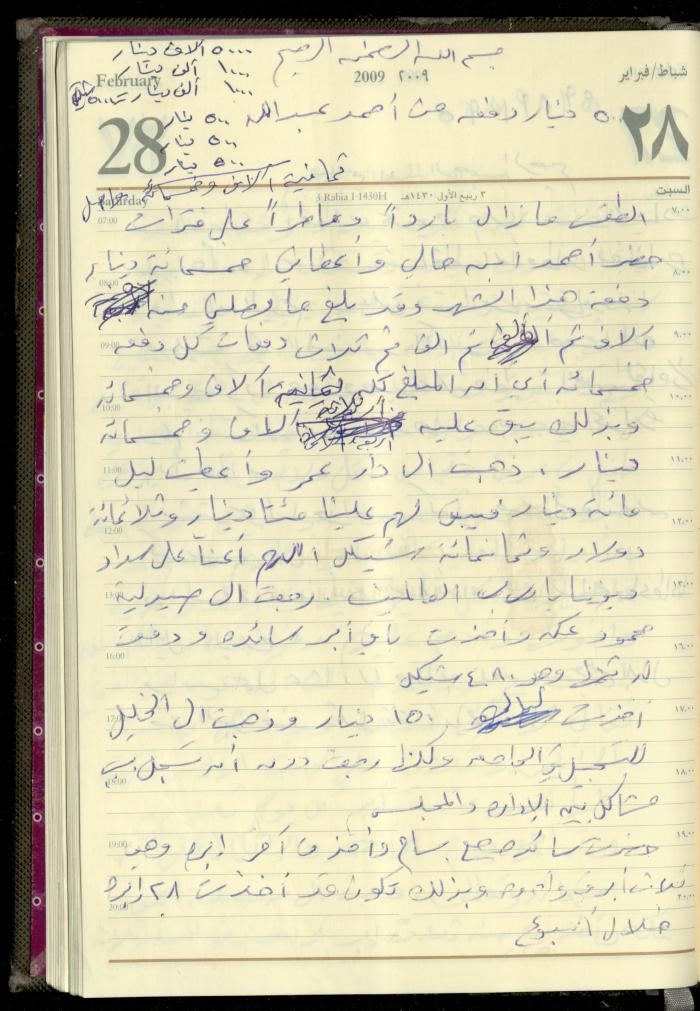 بسم الله الرحمن الرحيم
٥٠٠٠ آلاف دينار
١٠٠٠ ألف دينار
١٠٠٠ ألف دينار
٥٠٠ دينار
٥٠٠ دينار
٥٠٠ دينار
ثمانية آلاف وخمسمائة
February
2009 ٢٠٠٩
شباط/فبراير
28
٢٨
٥٠٠ دينار دفعه من أحمد عبد الله
Saturday
3 Rabia I 1430H
٣ ربيع الأول ١٤٣٠هـ
السبت
07:00 الطقس ما زال بارداً وماطراً على فترات ٧:٠٠
حضر أحمد ابن خالي وأعطاني خمسمائة دينار
08:00 ٨:٠٠
دفعة هذا الشهر وقد بلغ ما وصلني منه
09:00 آلاف ثم ألف ثم ألف ثم ثلاث دفعات كل دفعه ٩:٠٠
خمسمائه أي أن المبلغ كله ثمانية آلاف وخمسمائة
10:00 ١٠:٠٠
وبذلك يبقى عليه آلاف وخمسمائة
11:00 دينار. ذهبت الى دار عمر وأعطيت ليل ١١:٠٠
مائة دينار فيبقى لهم علينا مئتا دينار وثلاثمائة
12:00 ١٢:٠٠
دولار وثمانمائة شيكل اللهم أعنا على سداد
13:00 ديوننا يا رب العالمين. رجعت الى صيدلية ١٣:٠٠
محمود عكه وأخذت باقي أبر سائده ودفعت
16:00 ١٦:٠٠
له ثمنها وهو ٤٨٠ شيكل
17:00 أخذت ١٥٠ دينار وذهبت الى الخليل ١٧:٠٠
للتسجيل في الجامعة ولكنها رجعت دون أن تسجل بسبب
18:00 ١٨:٠٠
مشاكل بين الإدارة والمجلس
19:00 حضرت سائده مع بسام وأخذت آخر ابره وهي ١٩:٠٠
ثلاث أبر وبذلك تكون قد أخذت ٢٨ ابره
20:00 ٢٠:٠٠
خلال أسبوع